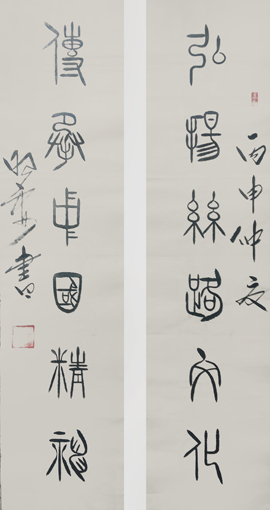 丙申仲夏
弘揚絲路文化
傳承中國精神
書